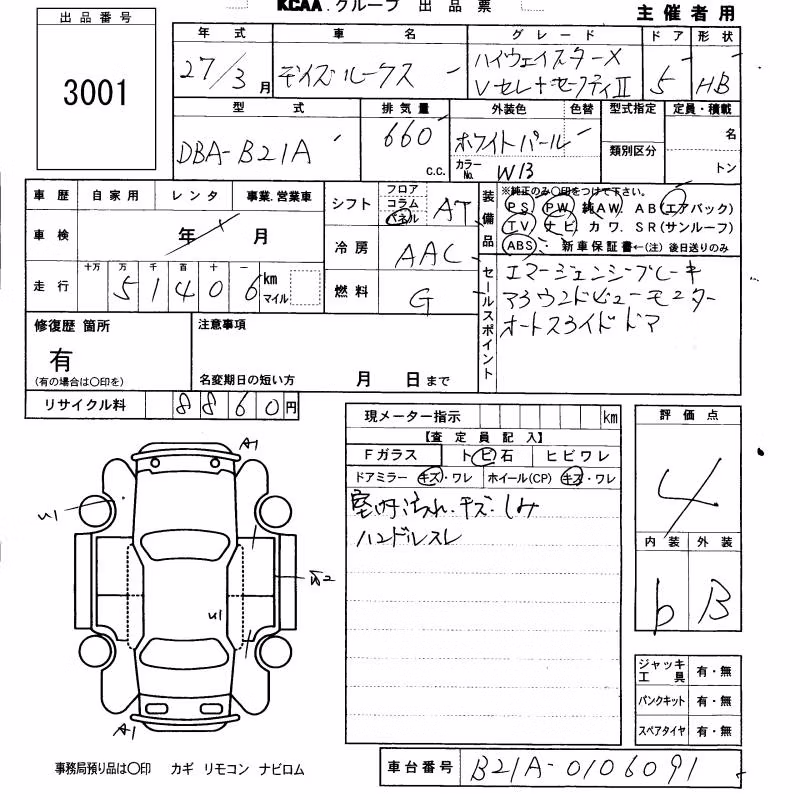 KCAA.グループ 出品票
主催者用
出品番号
3001
年式 車名 グレード ドア 形状
27/3月 デイズルークス ハイウェイスターX
Vセレ+セーフティII 5 HB
型式 排気量 外装色 色替 型式指定 定員・積載
DBA-B21A 660 c.c. ホワイトパール 名
カラーNo. W13 類別区分 トン
車歴 自家用 レンタ 事業.営業車
車検 年 月
走行 十万 万 千 百 十 一
5 1 4 0 6 km
マイル
シフト フロア
コラム
パネル AT
冷房 AAC
燃料 G
装備品 ※純正のみ〇印をつけて下さい。
PS PW 純AW. AB(エアバック)
TV ナビ カワ. SR(サンルーフ)
ABS 新車保証書←(注)後日送りのみ
セールスポイント
エマージェンシーブレーキ
アラウンドビューモニター
オートスライドドア
修復歴 箇所
有
(有の場合は〇印を)
注意事項
名変期日の短い方 月 日まで
リサイクル料 8860円
現メーター指示 km
【査定員記入】
Fガラス トビ石 ヒビワレ
ドアミラー キズ・ワレ ホイール(CP) キズ・ワレ
室内汚れ.キズ.しみ
ハンドルスレ
評価点
4
内装 外装
b B
ジャッキ
工具 有・無
パンクキット 有・無
スペアタイヤ 有・無
A1
U1
U1
A1
事務局預り品は〇印 カギ リモコン ナビロム
車台番号 B21A-0106091